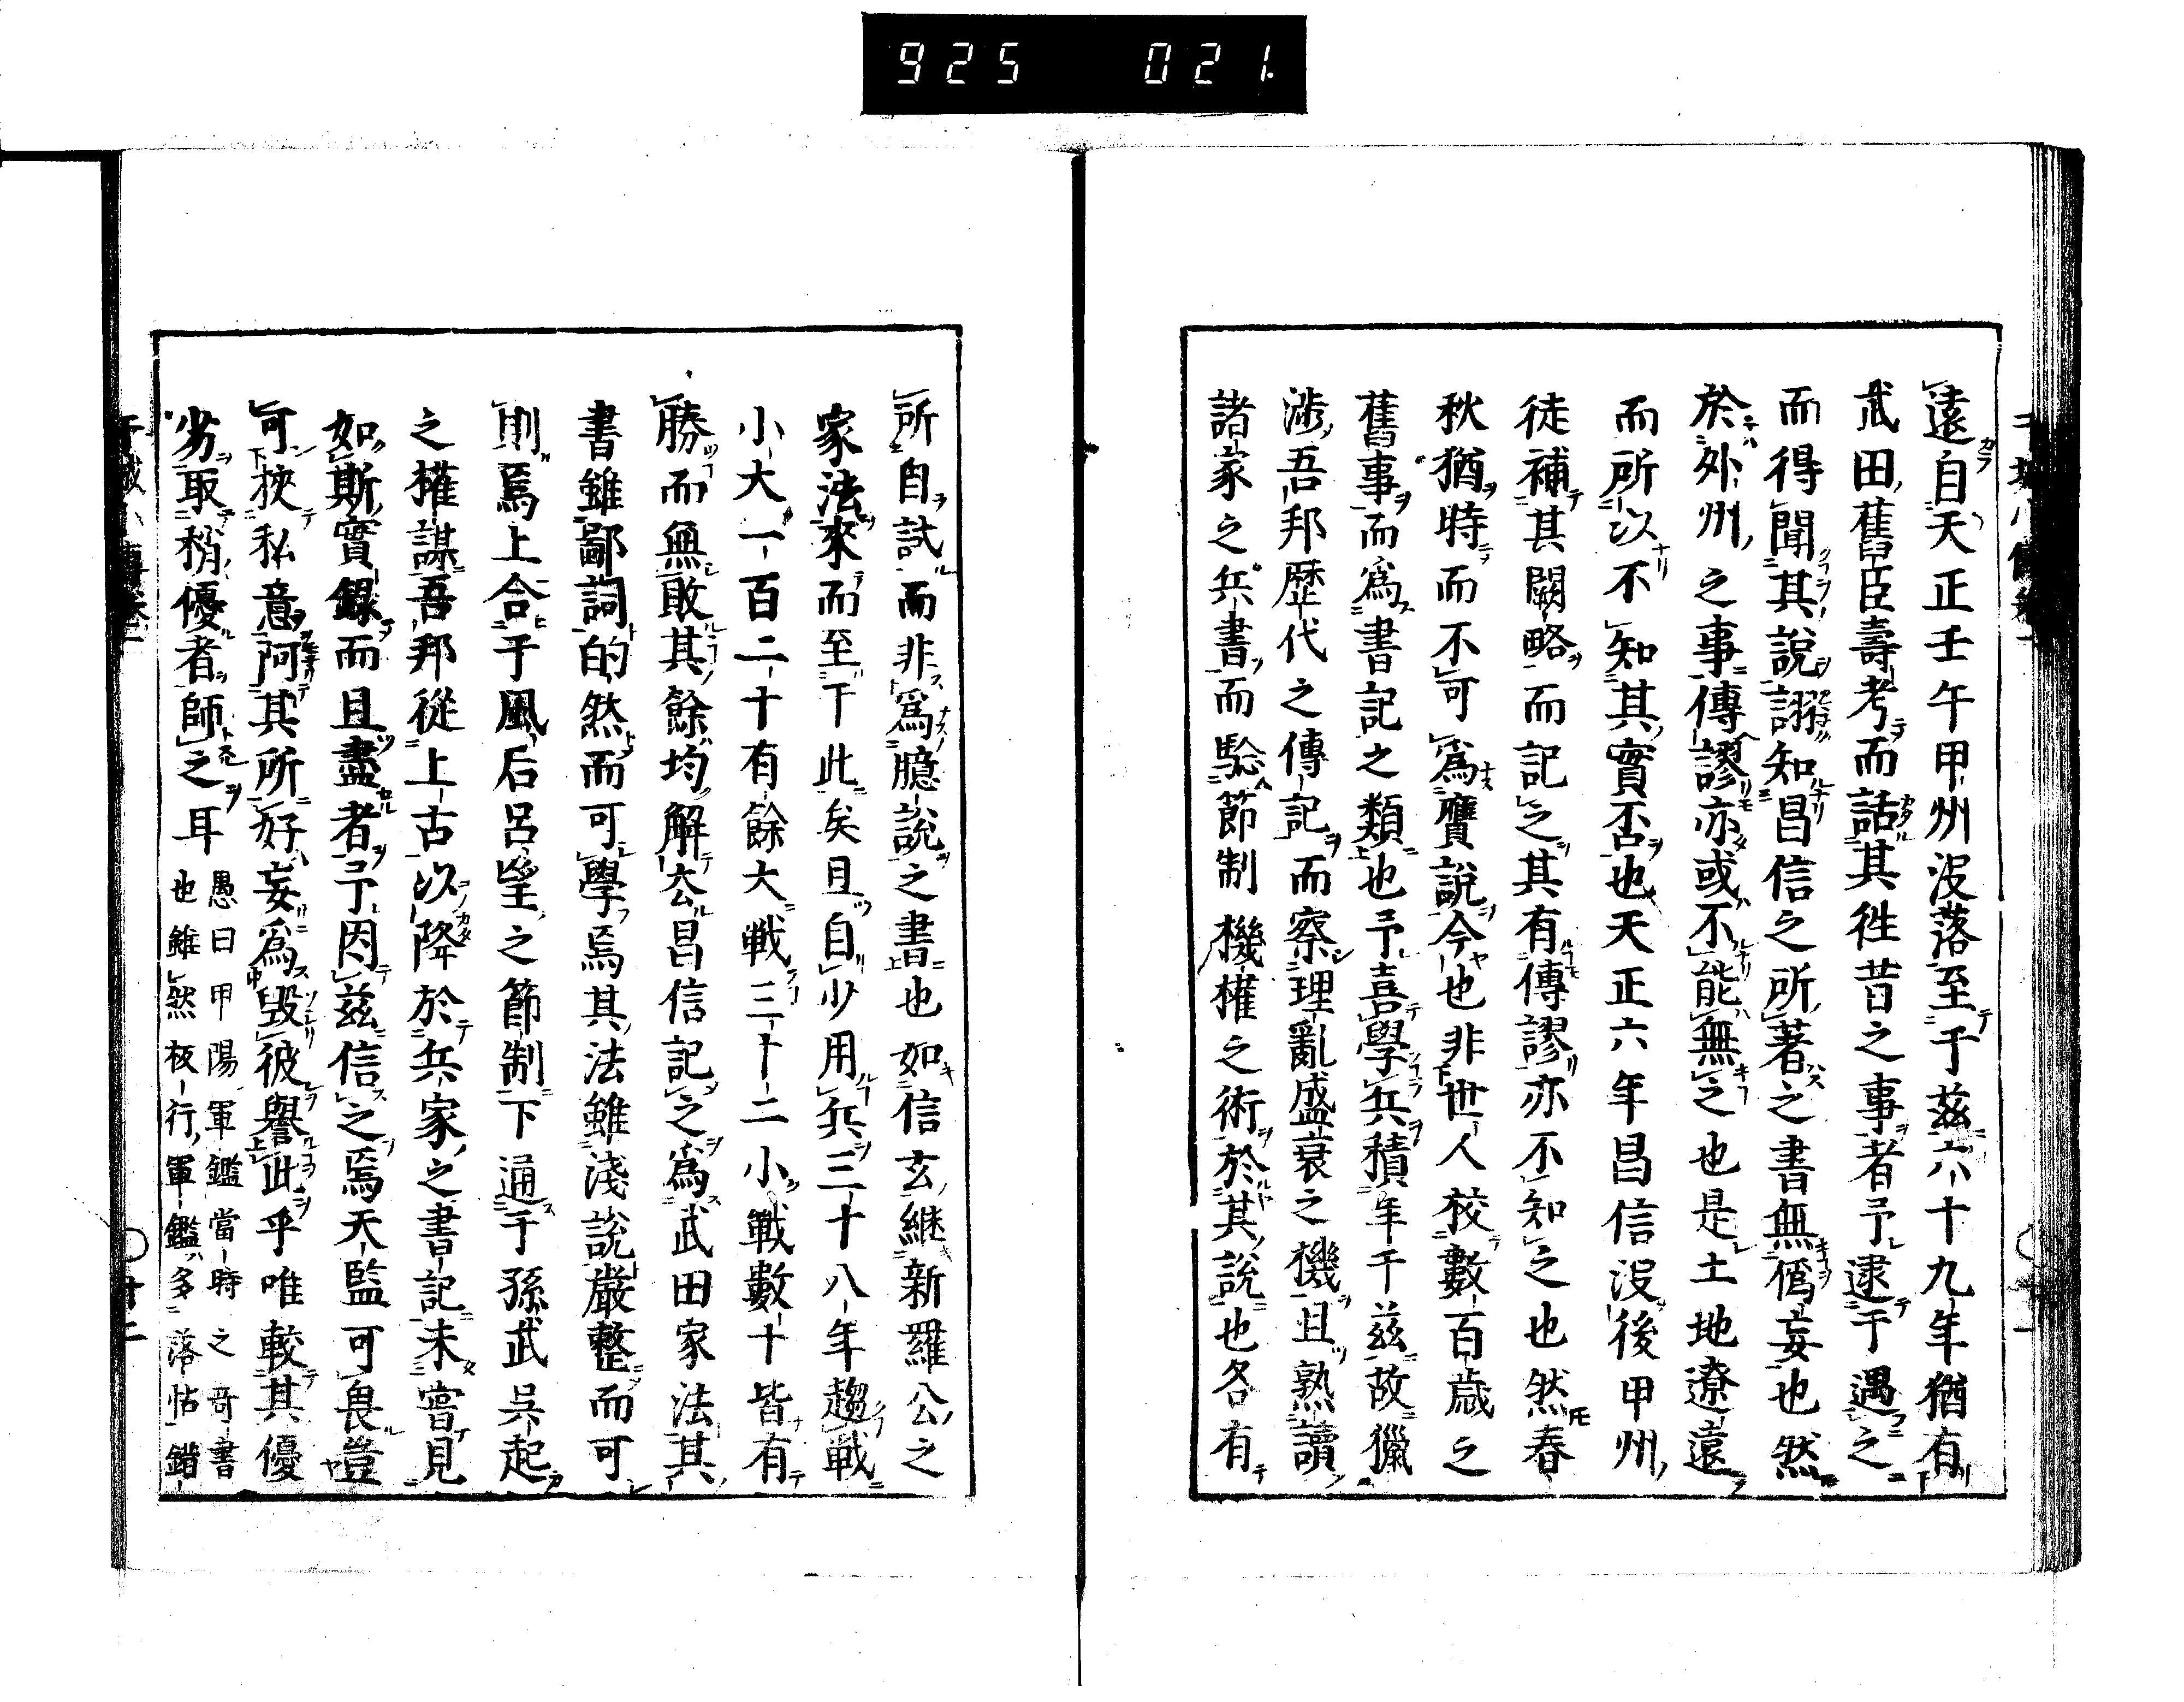 925 021
遠自天正壬午甲州沒落至于茲六十九年猶有
武田舊臣壽考而話其徃昔之事者予逮于遇之
而得聞其說詡知昌信之所著之書無僞妄也然
於外州之事傳謬亦或不能無之也是土地遼遠
而所以不知其實否也天正六年昌信沒後甲州
徒補其闕略而記之其有傳謬亦不知之也然春
秋猶時而不可爲贋說今也非世人校數百歲之
舊事而爲書記之類也予喜學兵積年于茲故獵
涉吾邦歷代之傳記而察理亂盛衰之機且熟讀
諸家之兵書而驗節制機權之術於其說也各有
所自試而非爲臆說之書也如信玄継新羅公之
家法來而至于此矣且自少用兵三十八年趨戰
小大一百二十有餘大戦三十二小戰數十皆有
勝而無敗其餘均解厺昌信記之爲武田家法其
書雖鄙詞的然而可學焉其法雖淺說嚴整而可
則焉上合于風后呂望之節制下通于孫武吳起
之權謀吾邦從上古以降於兵家之書記未嘗見
如斯實錄而且盡者予因茲信之焉天監可畏豈
可挾私意阿其所好妄爲毀彼譽此乎唯較其優
劣取稍優者師之耳
愚曰甲陽軍鑑當時之奇書
也雖然板行軍鑑多落帖錯